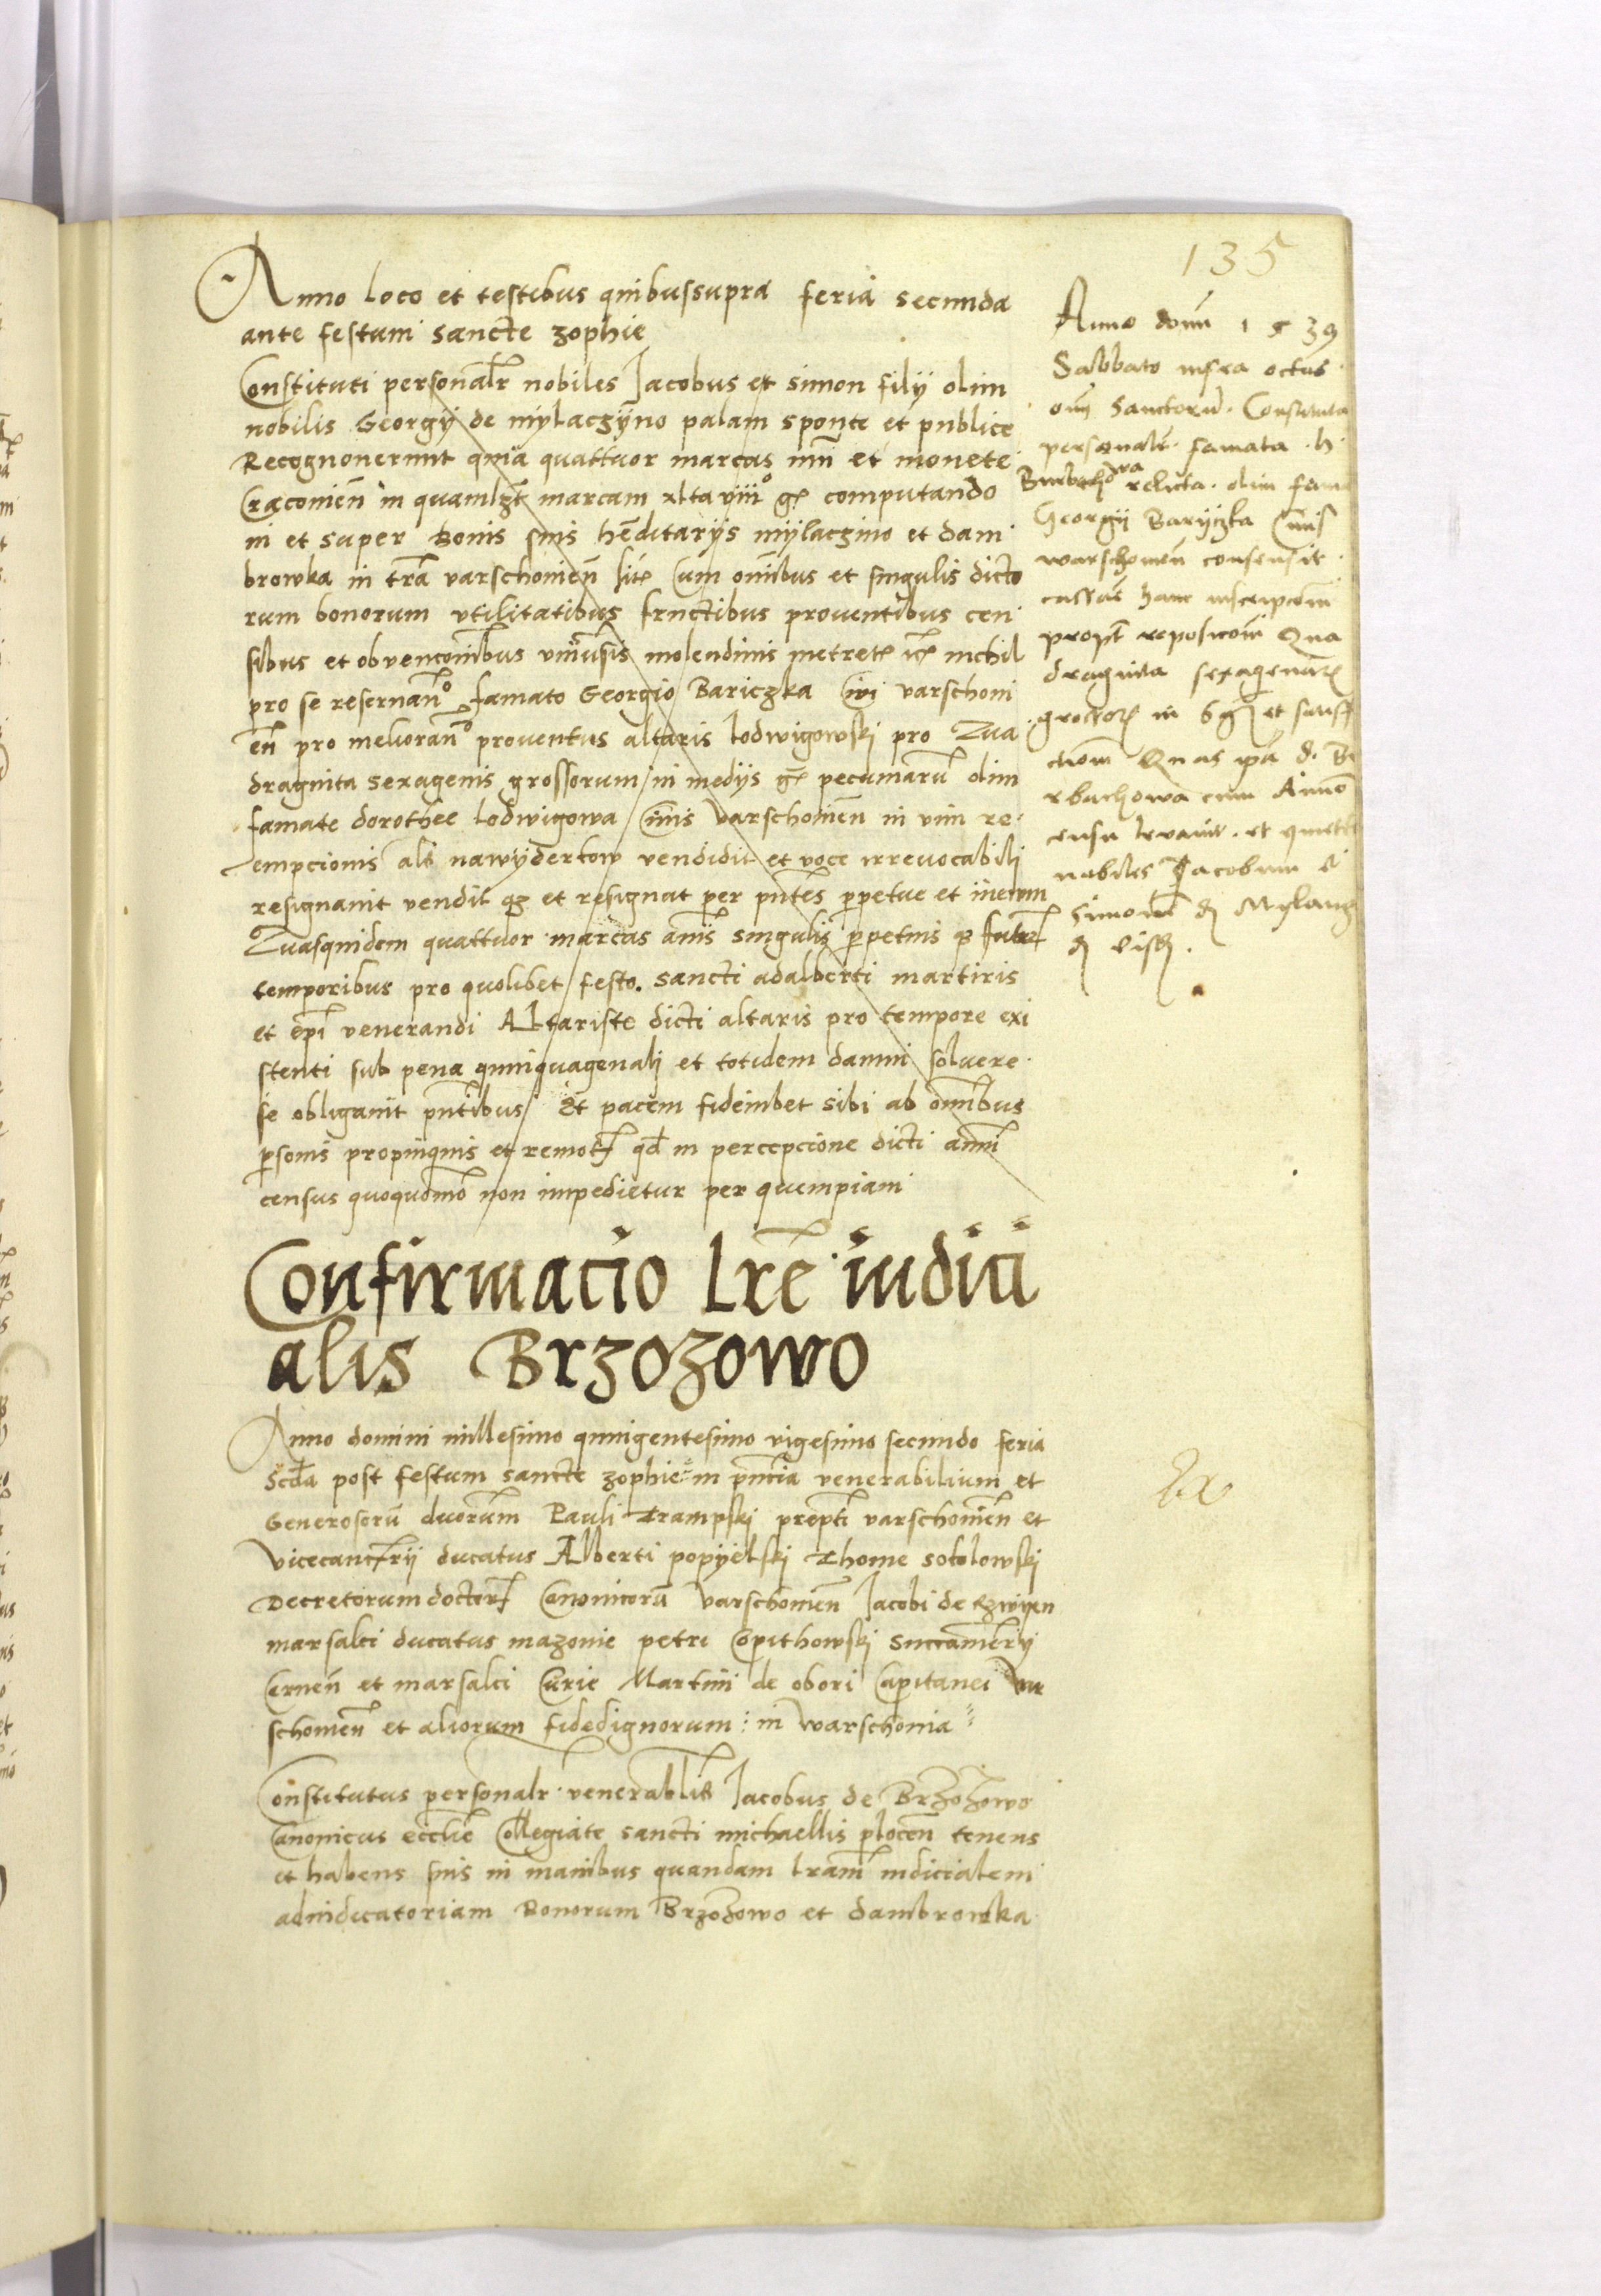 135
Anno loco et testibus quibussupra feria secunda
ante festum sancte zophie
Constituti personalr nobiles Jacobus et simon filij olim
nobilis Georgij de mylaczyno palam sponte et publice
Recognouerunt quia quattuor marcas mni et monete
Cracouien in quamlzt marcam xlta viii° gr computando
in et super bonis suis heditarijs mijlaczino et dam
browka in tra varschouien sitis Cum omibus et singulis dicto
rum bonorum vtilitatibus fructibus prouentibus cen
sibus et obvenconibus vniuersis molendinis metretis nichil
pro se reseruan° famato Georgio Bariczka Ciui varschoui
en pro melioran° prouentus altaris lodwigowski pro Qua
draginta sexagenis grossorum in medijs gr pecuniaru olim
famate dorothee lodwigowa Ciuis varschouien in vim re
empcionis als nawyderkow vendidit et voce irrevocabili
resignauit vendit qz et resignat per pntes perpetue et in evum
Quasquidem quattuor marcas annis singulis perpetuis qz futur
temporibus pro quolibet festo sancti adalberti martiris
et epi venerandi Altariste dicti altaris pro tempore exi
stenti sub pena quinquagenali et totidem damni soluere
se obligauit pntibus Et pacem fideiubet sibi ab omibus
personis propinquis et remot qd in percepcione dicti annui
census quoquomo non impedietur per quempiam
Anno domi 1539
Sabbato infra octas
omi Sanctoru Constituta
personalr famata h
Burbachowa relicta olim fama
Georgii Baryczka Ciuis
warschouien consensit
cassare hanc inscripcom
propt reposicom Qua
draginta sexagenar
grossor in et satisf
ctiom Quas ipa d. Bu
rbachowa cum Annuo
censu levauit et quitt
nobiles Jacobum et
Simonem d Mylacz
d
Confirmacio Lre iudici
alis Brzozowo
Anno domini millesimo quingentesimo vigesimo secundo feria
scda post festum sancte zophie in pntia venerabilium et
Generosoru duorum Pauli Trampski prepti varschouien et
vicecancrij ducatus Alberti popyelski Thome sokolowski
Decretorum doctor Canonicoru varschouien Jacobi de Rzwyen
marsalci ducatus mazouie petri Copithowski succamerij
Cernen et marsalci Curie Martini de obori Capitanei var
schouien et aliorum fidedignorum in warschouia
Constitutus personalr venerablis Jacobus de Brzozowo
Canonicus ecclie Collegiate sancti michaellis plocen tenens
et habens suis in manibus quandam lram iudicialem
adiudicatoriam Bonorum Brzozowo et dambrowka